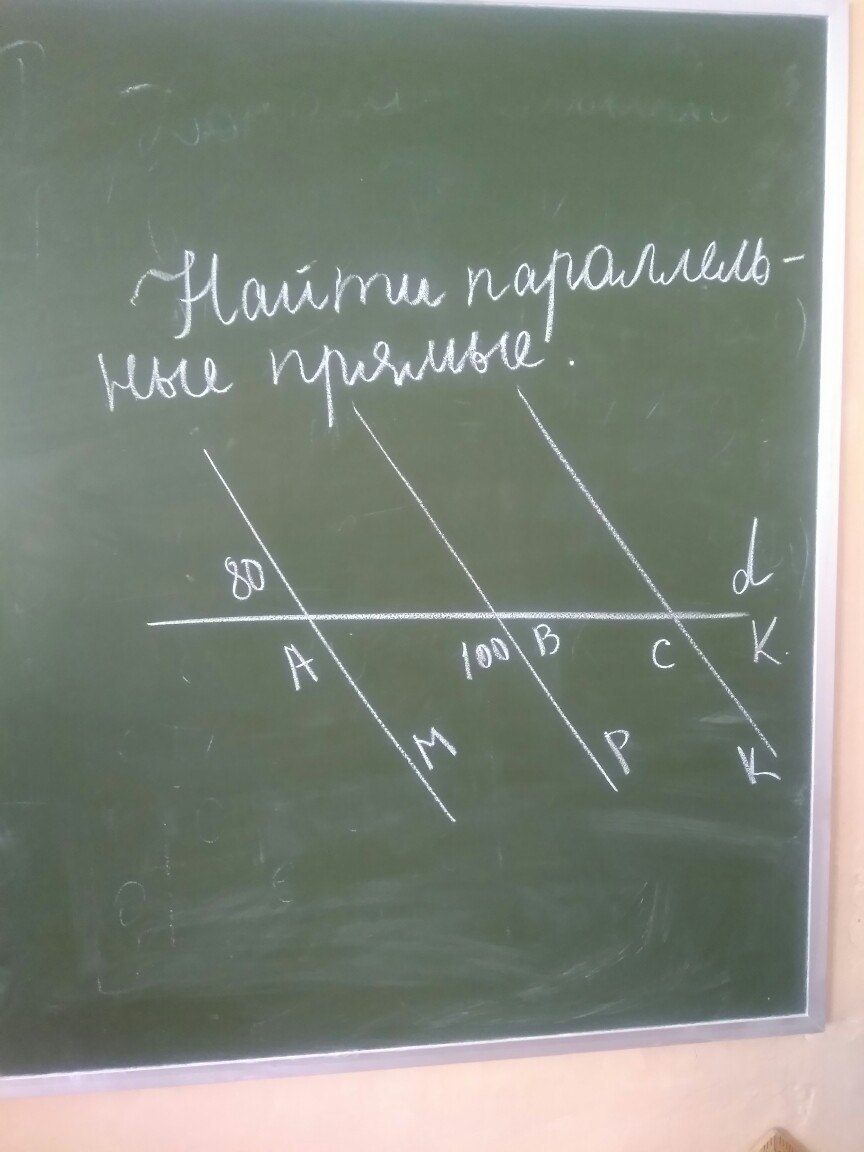 Найти параллель-
ные прямые.
80
d
A
100
B
C
K
M
P
K